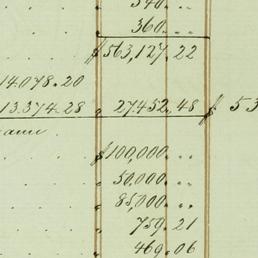 540...
360...
$563,127.22
14078.20
13.374.28 „ 27.452.48 $ 53
$100,000...
„ 50,000...
„ 85,000...
„ 759.21
„ 469.06